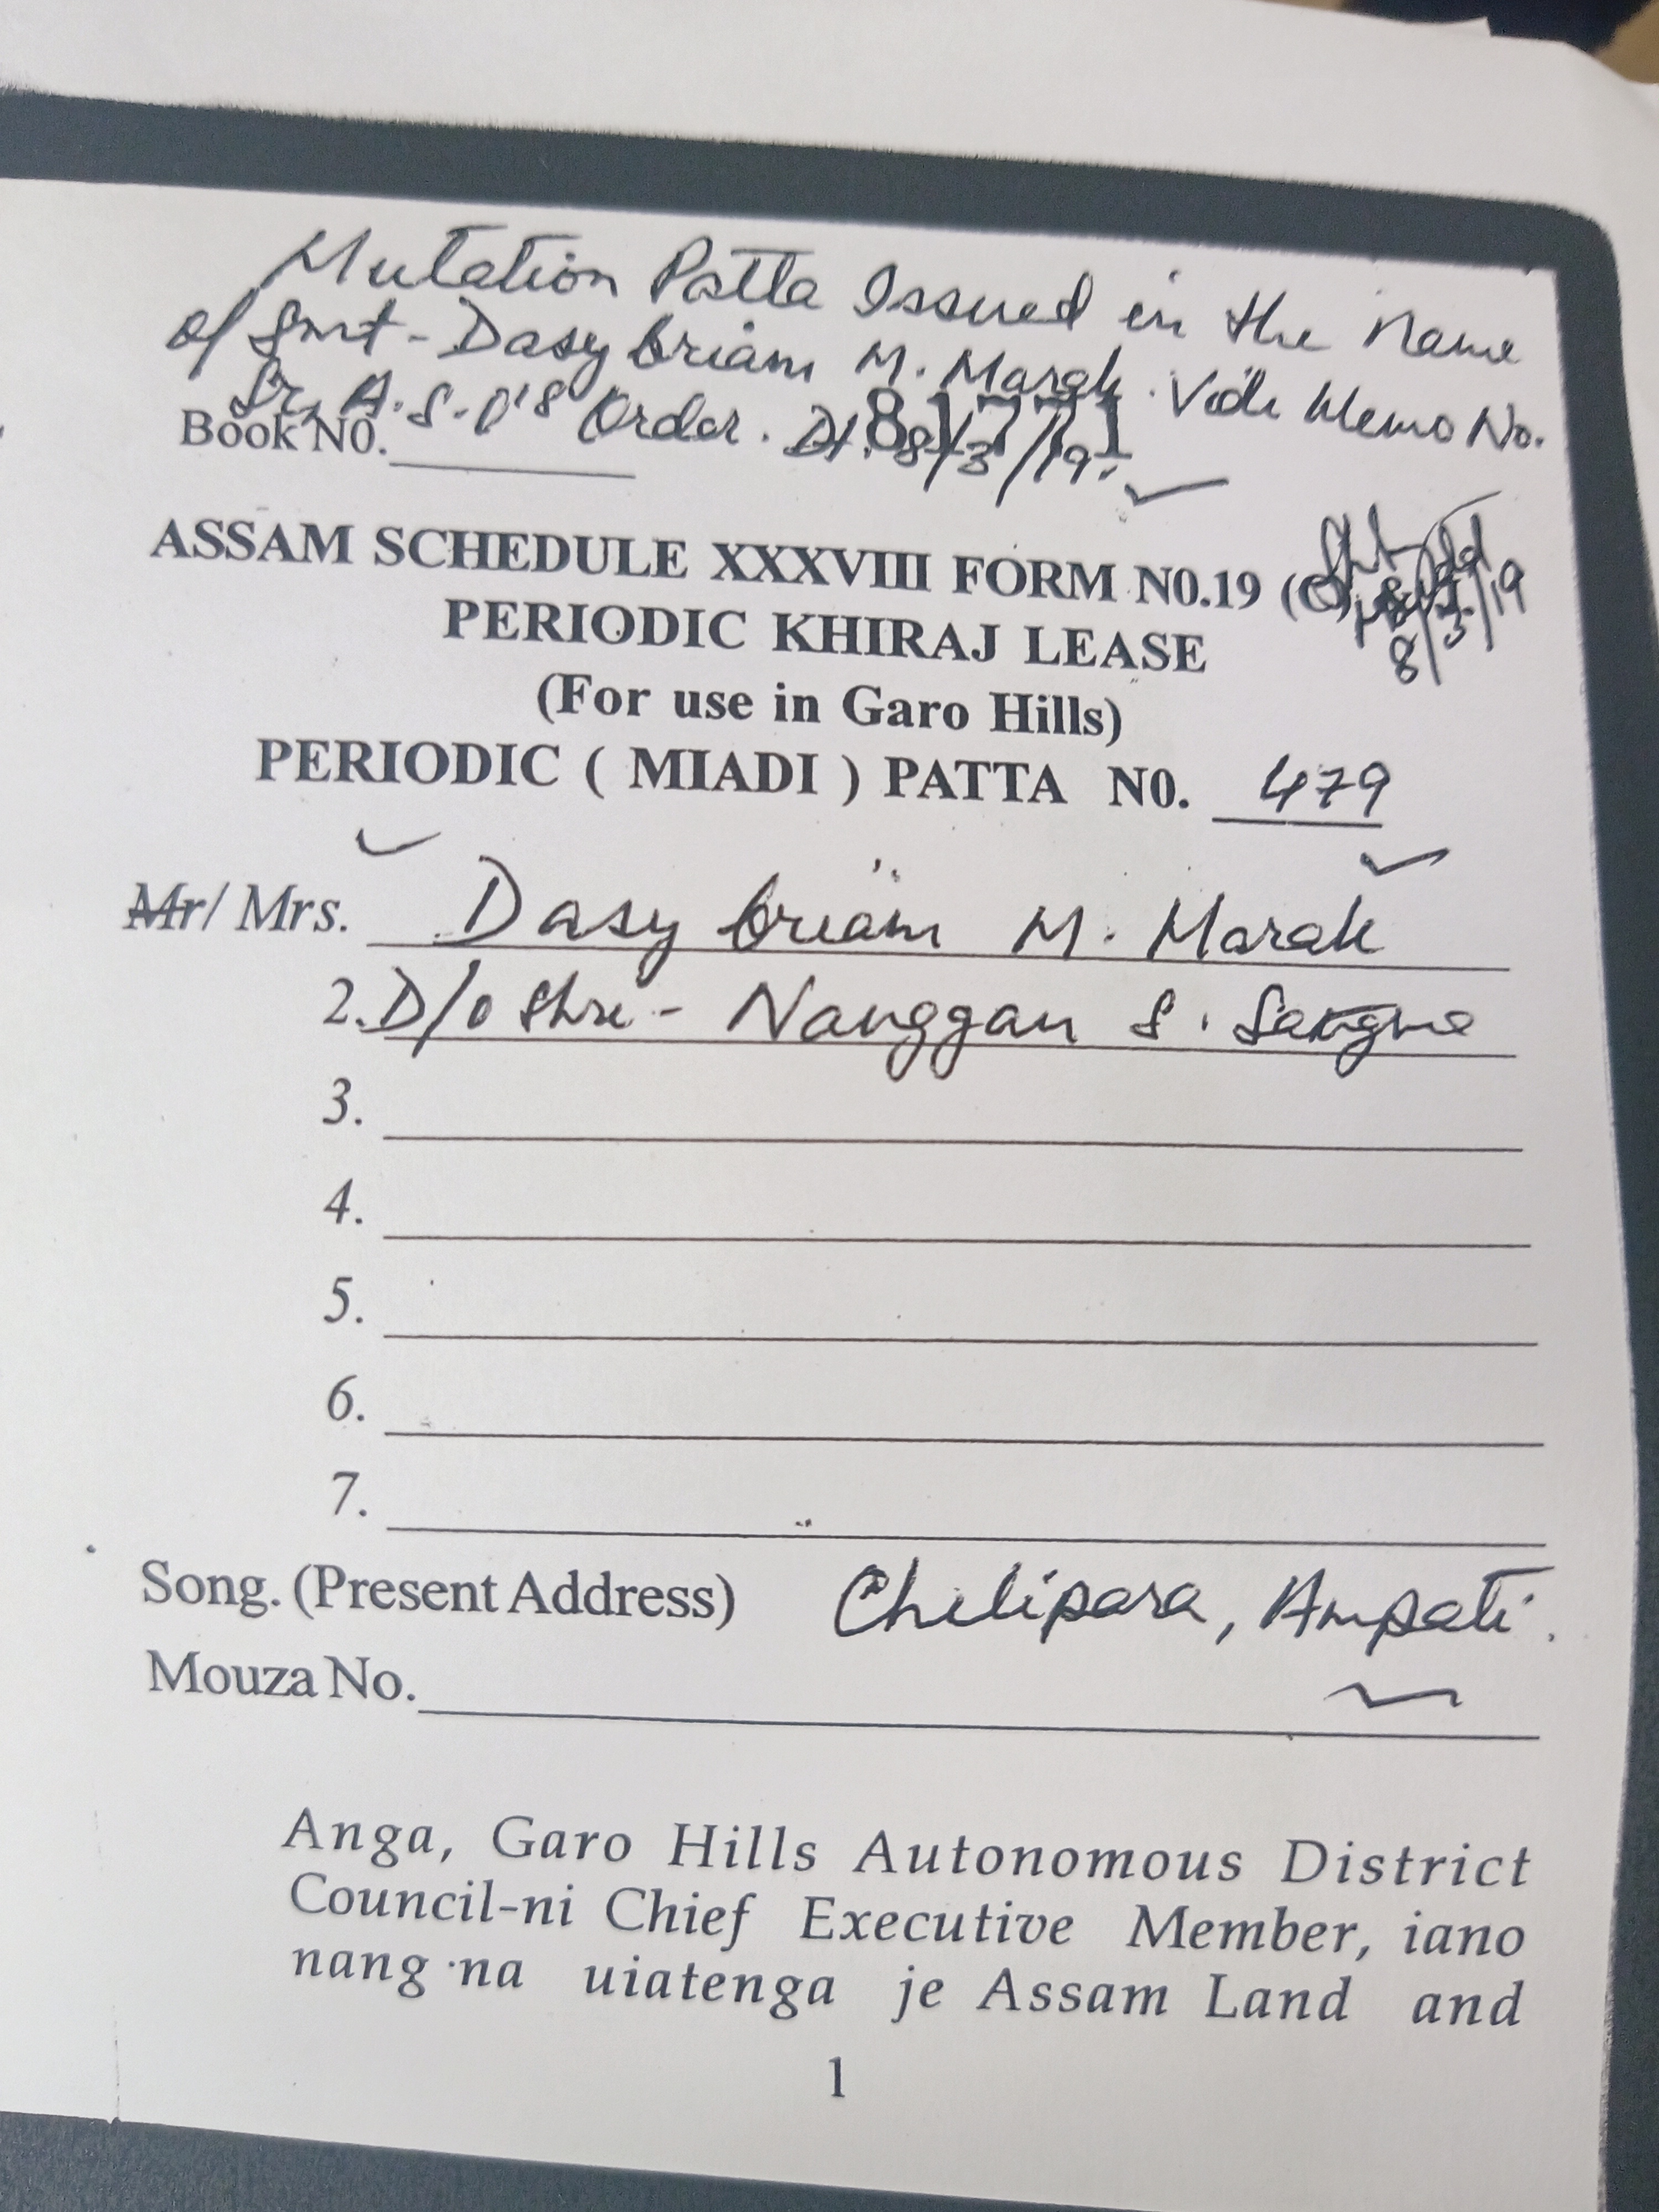 Mutation Patta Issued in the Name
of Smt - Dasy briam M. Marak. Vide Memo No.
Sr. A.S.O's Order. Dt. 8/3/19.
Book N0.
81771
ASSAM SCHEDULE XXXVIII FORM N0.19 (C)
8/3/19
PERIODIC KHIRAJ LEASE
(For use in Garo Hills)
PERIODIC ( MIADI ) PATTA N0. 479
Mr/ Mrs. Dasy briam M. Marak
2. D/o Shri - Nanggan S. Sangma
3.
4.
5.
6.
7.
Song. (Present Address) Chelipara, Ampati.
Mouza No.
Anga, Garo Hills Autonomous District
Council-ni Chief Executive Member, iano
nang·na uiatenga je Assam Land and
1